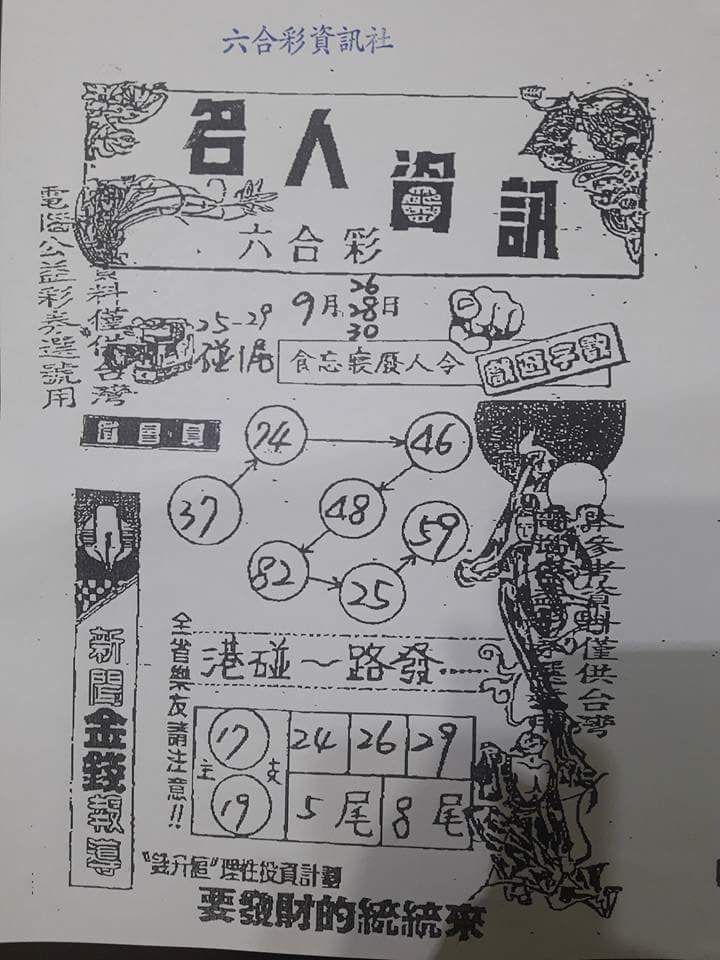 六合彩資訊社
名人資訊
六合彩
9月26
28日
30
25-29
碰1尾
食忘寢廢人令
電腦公益彩券選號用
資料僅供台灣
74
46
37
48
59
82
25
新聞金錢報導
全省樂友請注意!!
港碰一路發……
17
24
26
29
主
支
19
5尾
8尾
本參考資料僅供台灣
理性投資計劃
要發財的統統來